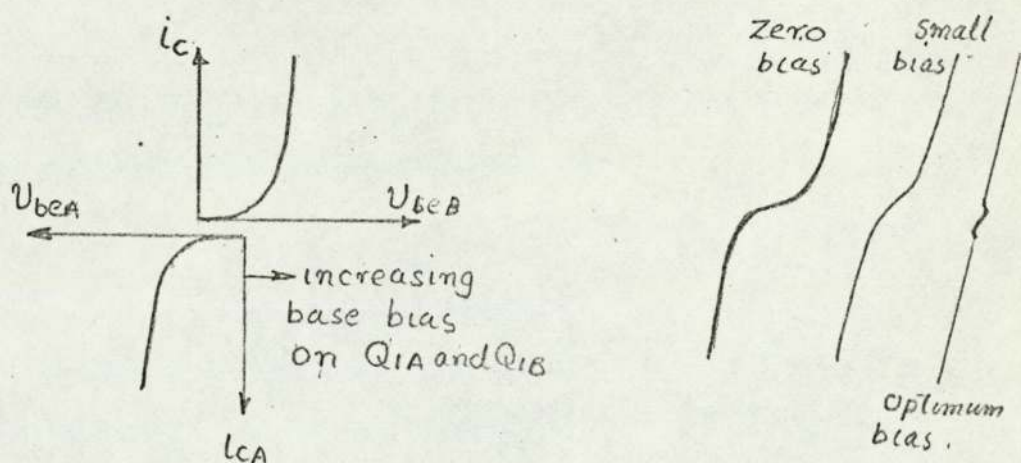 ic
VbeA
VbeB
increasing
base bias
on Q1A and Q1B
icA
Zero
bias
Small
bias
optimum
bias.